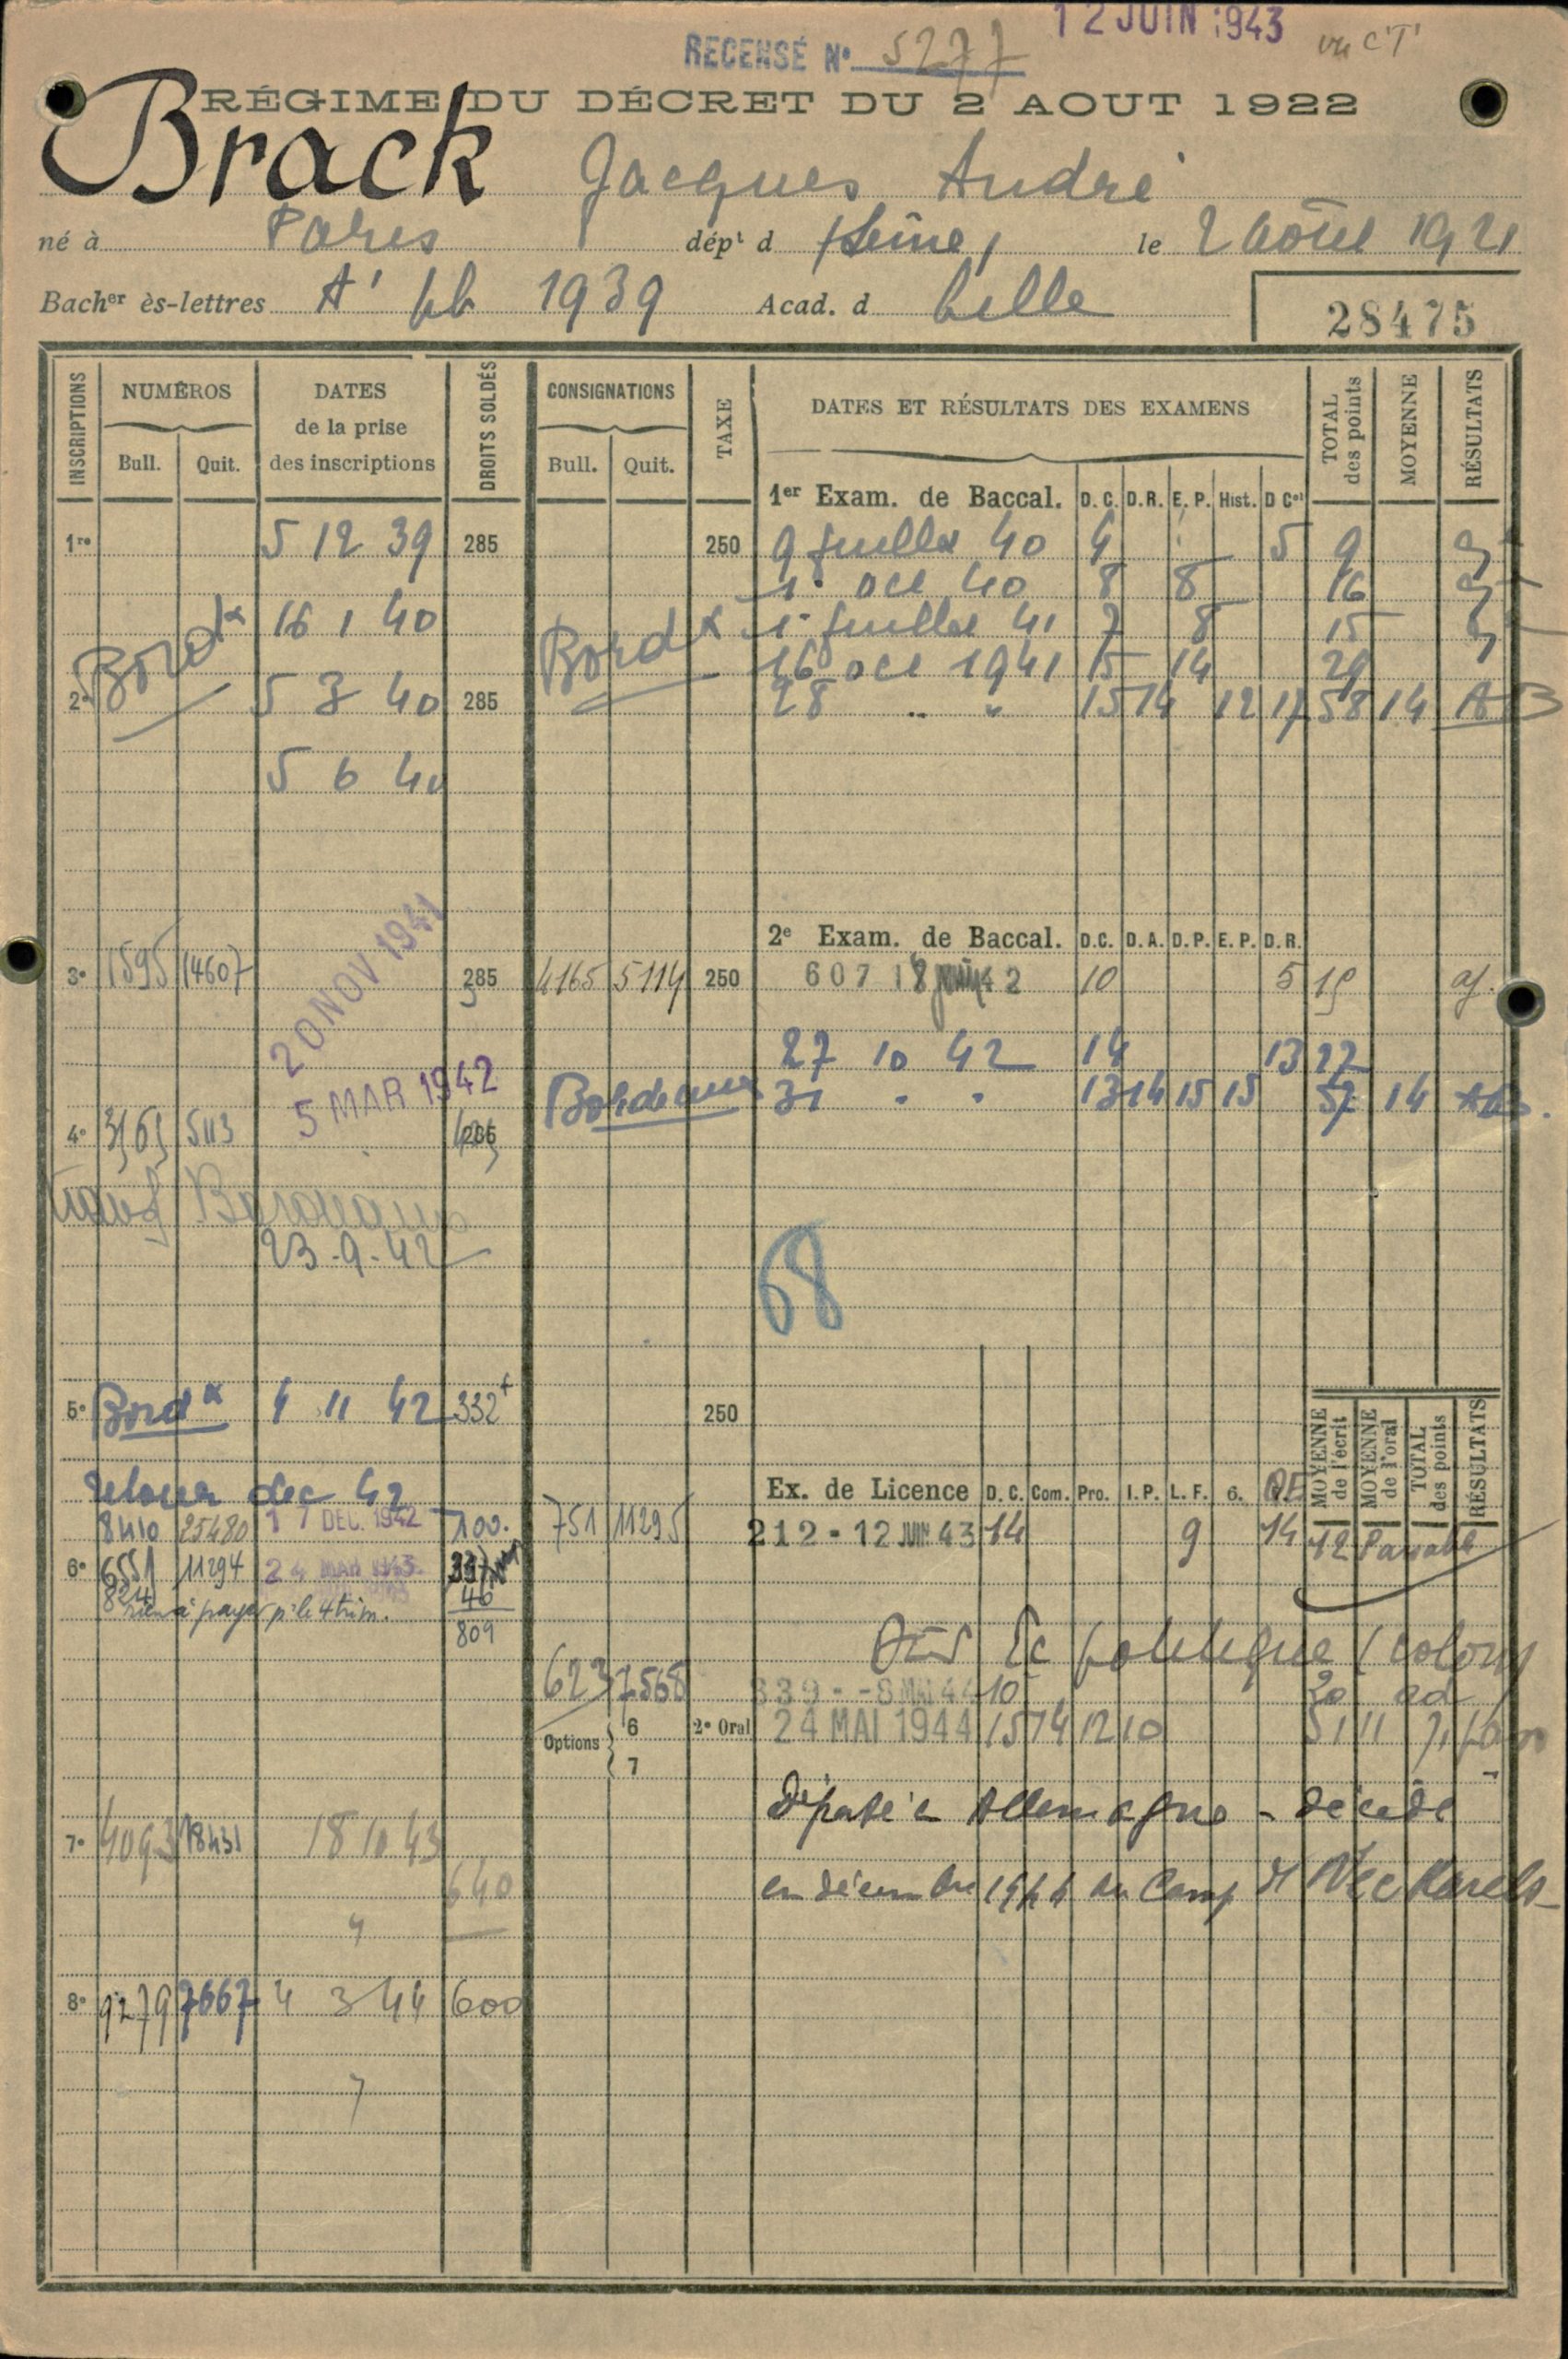 12 JUIN 1943
RECENSÉ N° 5277
RÉGIME DU DÉCRET DU 2 AOUT 1922
Brack Jacques André
né à Paris dépt d (Seine) le 2 août 1921
Bacher ès-lettres A' ph 1939 Acad. d Lille
28475
INSCRIPTIONS NUMÉROS DATES de la prise des inscriptions DROITS SOLDÉS CONSIGNATIONS TAXE DATES ET RÉSULTATS DES EXAMENS TOTAL des points MOYENNE RÉSULTATS
Bull. Quit. Bull. Quit.
1er Exam. de Baccal. D.C. D.R. E.P. Hist. D Col
1re 5 12 39 285 250 9 juillet 40 4 5 9
1 oct 40 8 8 16
Bordx 16 1 40 Bordx 1 juillet 41 7 8 15
16 oct 1941 15 14 29
2e 5 3 40 285 28 " " 15 14 12 17 58 14 AB
5 6 40
2e Exam. de Baccal. D.C. D.A. D.P. E.P. D.R.
3e 1595 14607 20 NOV 1941 285 4165 5114 250 607 18 42 10 5 15 aj.
27 10 42 14 13 27
5 MAR 1942 Bordeaux 31 " " 13 14 15 15 57 14 AB.
4e 3563 5113 285
Transf Bordeaux
23-9-42
68
5e Bordx 4 11 42 332 250
MOYENNE de l'écrit MOYENNE de l'oral TOTAL des points RÉSULTATS
retour dec 42
Ex. de Licence D.C. Com. Pro. I.P. L.F. 6.
8410 25480 17 DEC. 1942 100. 751 11295 212 - 12 JUIN 43 14 9 14 12 Passable
6e 6551 11294 24 MAR 1943 337
824 46
rien à payer pr le 4 trim. 809
Ec politique (colon)
623 7568 339 - -8 MAI 44 10 20 ad
Options 6 7 2e Oral 24 MAI 1944 15 14 12 10 51
déporté en Allemagne - décédé
7e 4093 18431 18 10 43
640
en décembre 1944 au Camp de Neckarels
8e 9279 7667 4 3 44 600